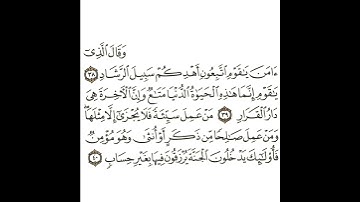 وَقَالَ ٱلَّذِىٓ
ءَامَنَ يَـٰقَوْمِ ٱتَّبِعُونِ أَهْدِكُمْ سَبِيلَ ٱلرَّشَادِ ٣٨
يَـٰقَوْمِ إِنَّمَا هَـٰذِهِ ٱلْحَيَوٰةُ ٱلدُّنْيَا مَتَـٰعٌ وَإِنَّ ٱلْـَٔاخِرَةَ هِىَ
دَارُ ٱلْقَرَارِ ٣٩ مَنْ عَمِلَ سَيِّئَةً فَلَا يُجْزَىٰٓ إِلَّا مِثْلَهَا
وَمَنْ عَمِلَ صَـٰلِحًا مِّن ذَكَرٍ أَوْ أُنثَىٰ وَهُوَ مُؤْمِنٌ
فَأُو۟لَـٰٓئِكَ يَدْخُلُونَ ٱلْجَنَّةَ يُرْزَقُونَ فِيهَا بِغَيْرِ حِسَابٍ ٤٠